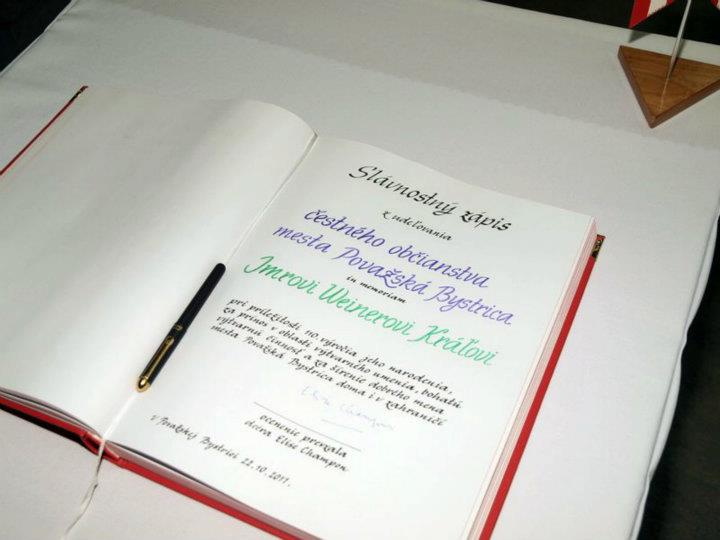 Slávnostný zápis
z udeľovania
čestného občianstva
mesta Považská Bystrica
in memoriam
Imrovi Weinerovi Kráľovi
pri príležitosti 110. výročia jeho narodenia,
za prínos v oblasti výtvarného umenia, bohatú
výtvarnú činnosť a za šírenie dobrého mena
mesta Považská Bystrica doma i v zahraničí
Elise Champon
ocenenie prevzala
dcéra Elise Champon
V Považskej Bystrici 22.10.2011.